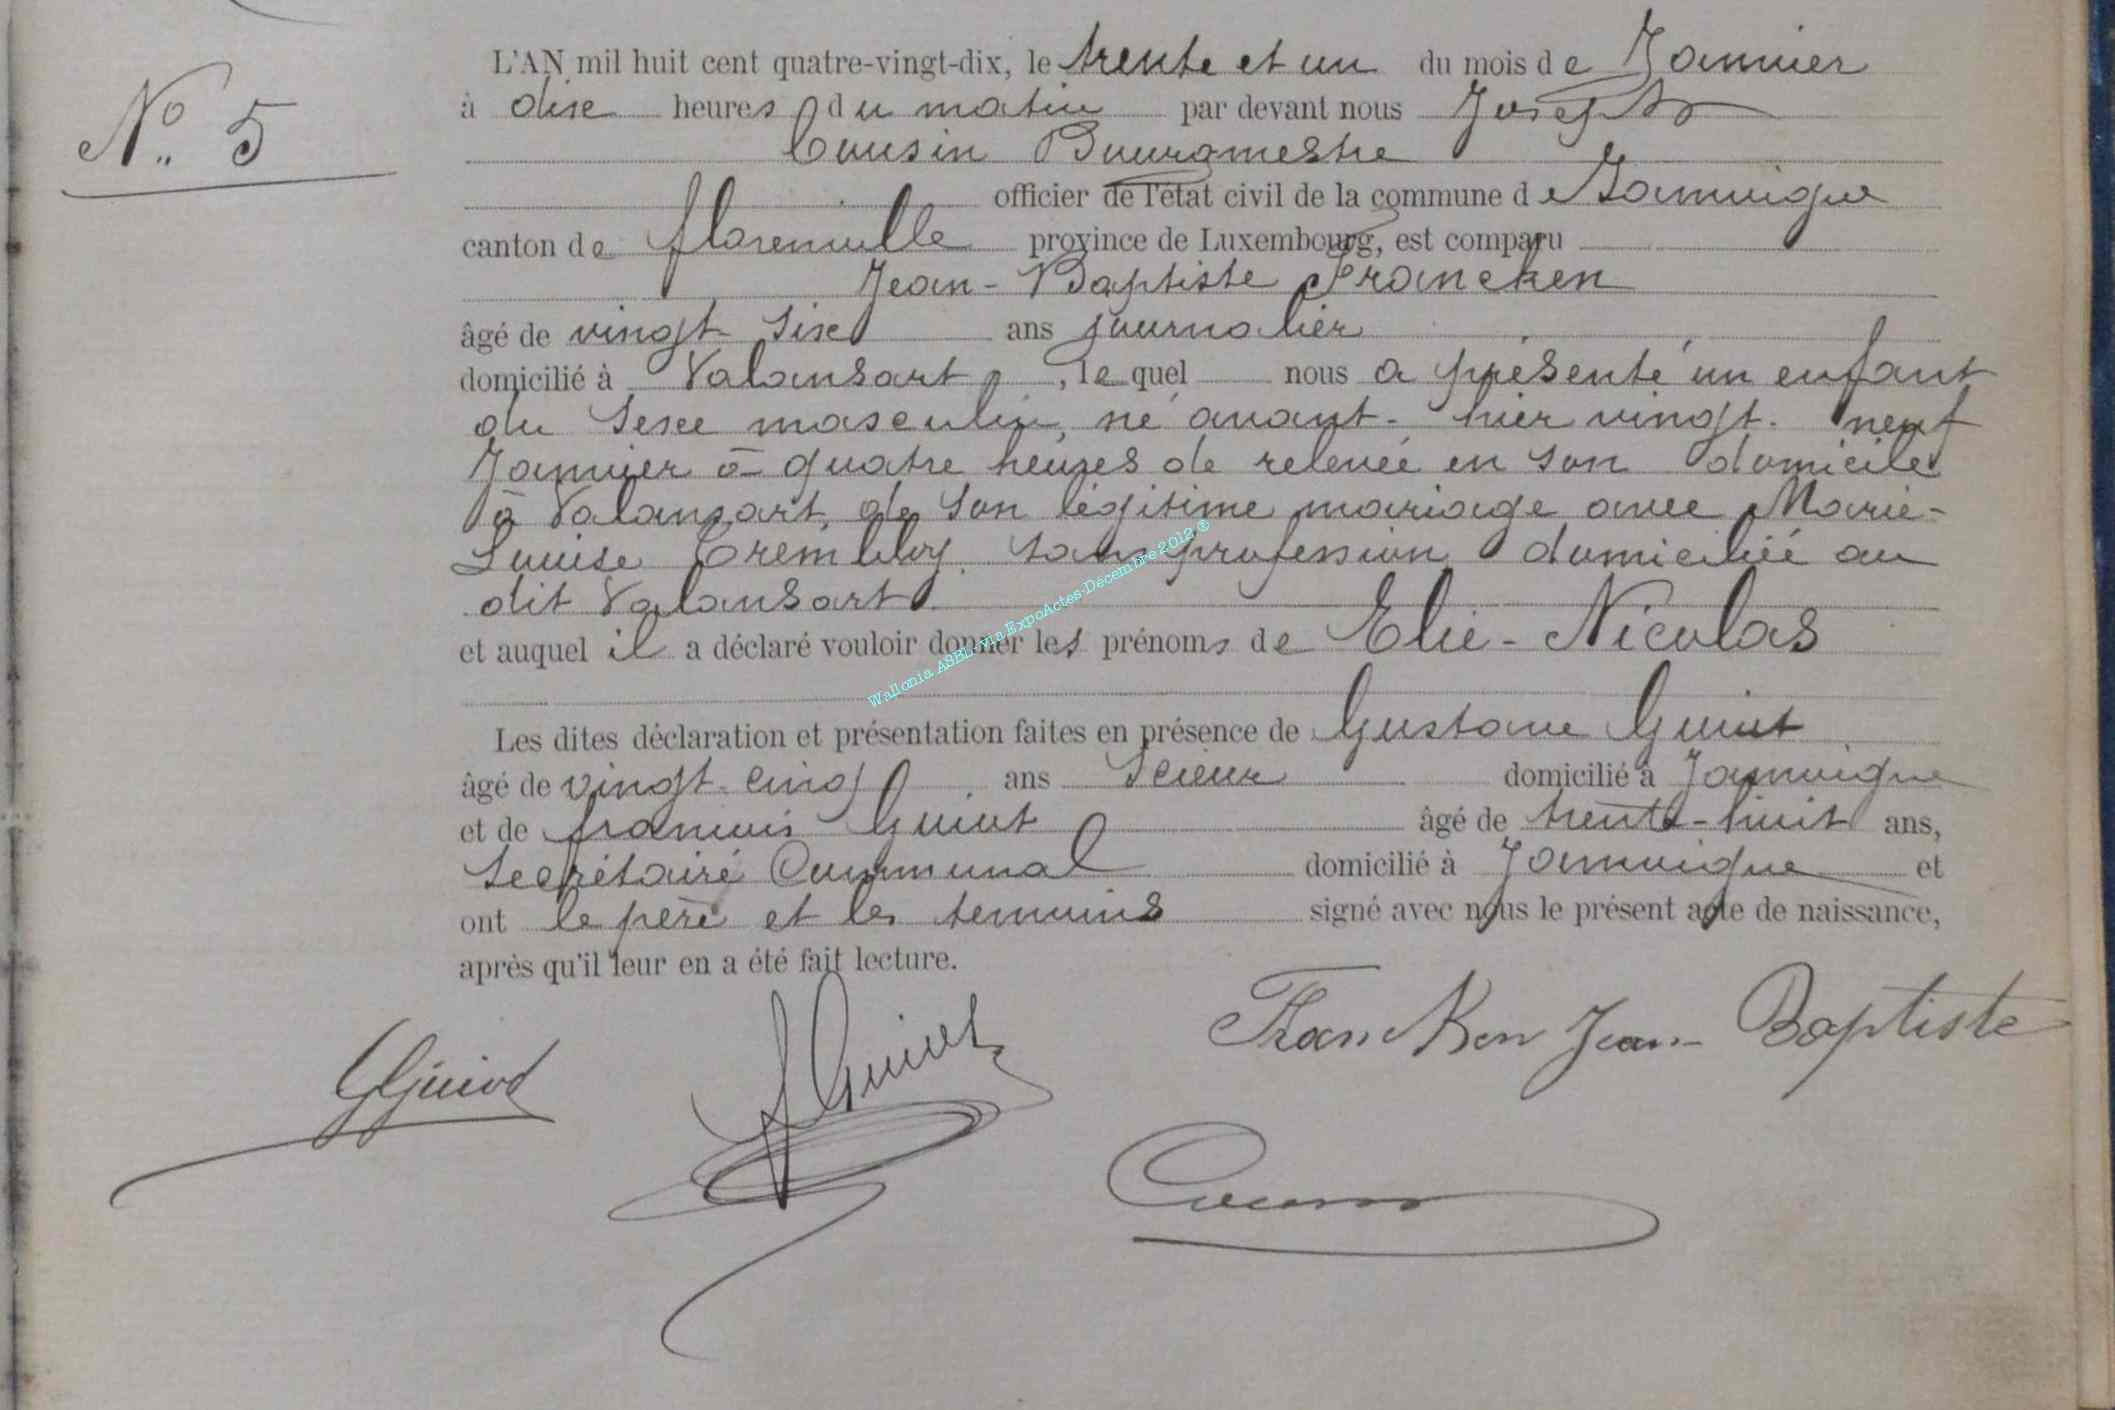 N° 5
L'AN mil huit cent quatre-vingt-dix, le trente et un du mois de Janvier
à dix heures du matin par devant nous Joseph
Cousin Bourgmestre
officier de l'état civil de la commune de Jamoigne
canton de florenville province de Luxembourg, est comparu
Jean-Baptiste Francken
âgé de vingt-six ans journalier
domicilié à Valansart, lequel nous a présenté un enfant
du sexe masculin, né avant-hier vingt-neuf
Janvier à quatre heures de relevée en son domicile
à Valansart, de son légitime mariage avec Marie-
Louise Trembloy, sans profession domiciliée au
dit Valansart.
et auquel il a déclaré vouloir donner les prénoms de Elie-Nicolas
Les dites déclaration et présentation faites en présence de Gustave Guiot
âgé de vingt-cinq ans Scieur domicilié à Jamoigne
et de françois Guiot âgé de trente-huit ans,
Secrétaire Communal domicilié à Jamoigne et
ont le père et les témoins signé avec nous le présent acte de naissance,
après qu'il leur en a été fait lecture.
Francken Jean-Baptiste
GGuiot
fGuiot
Cousin
Wallonia ASBL via ExpoActes-Décembre 2012 ®